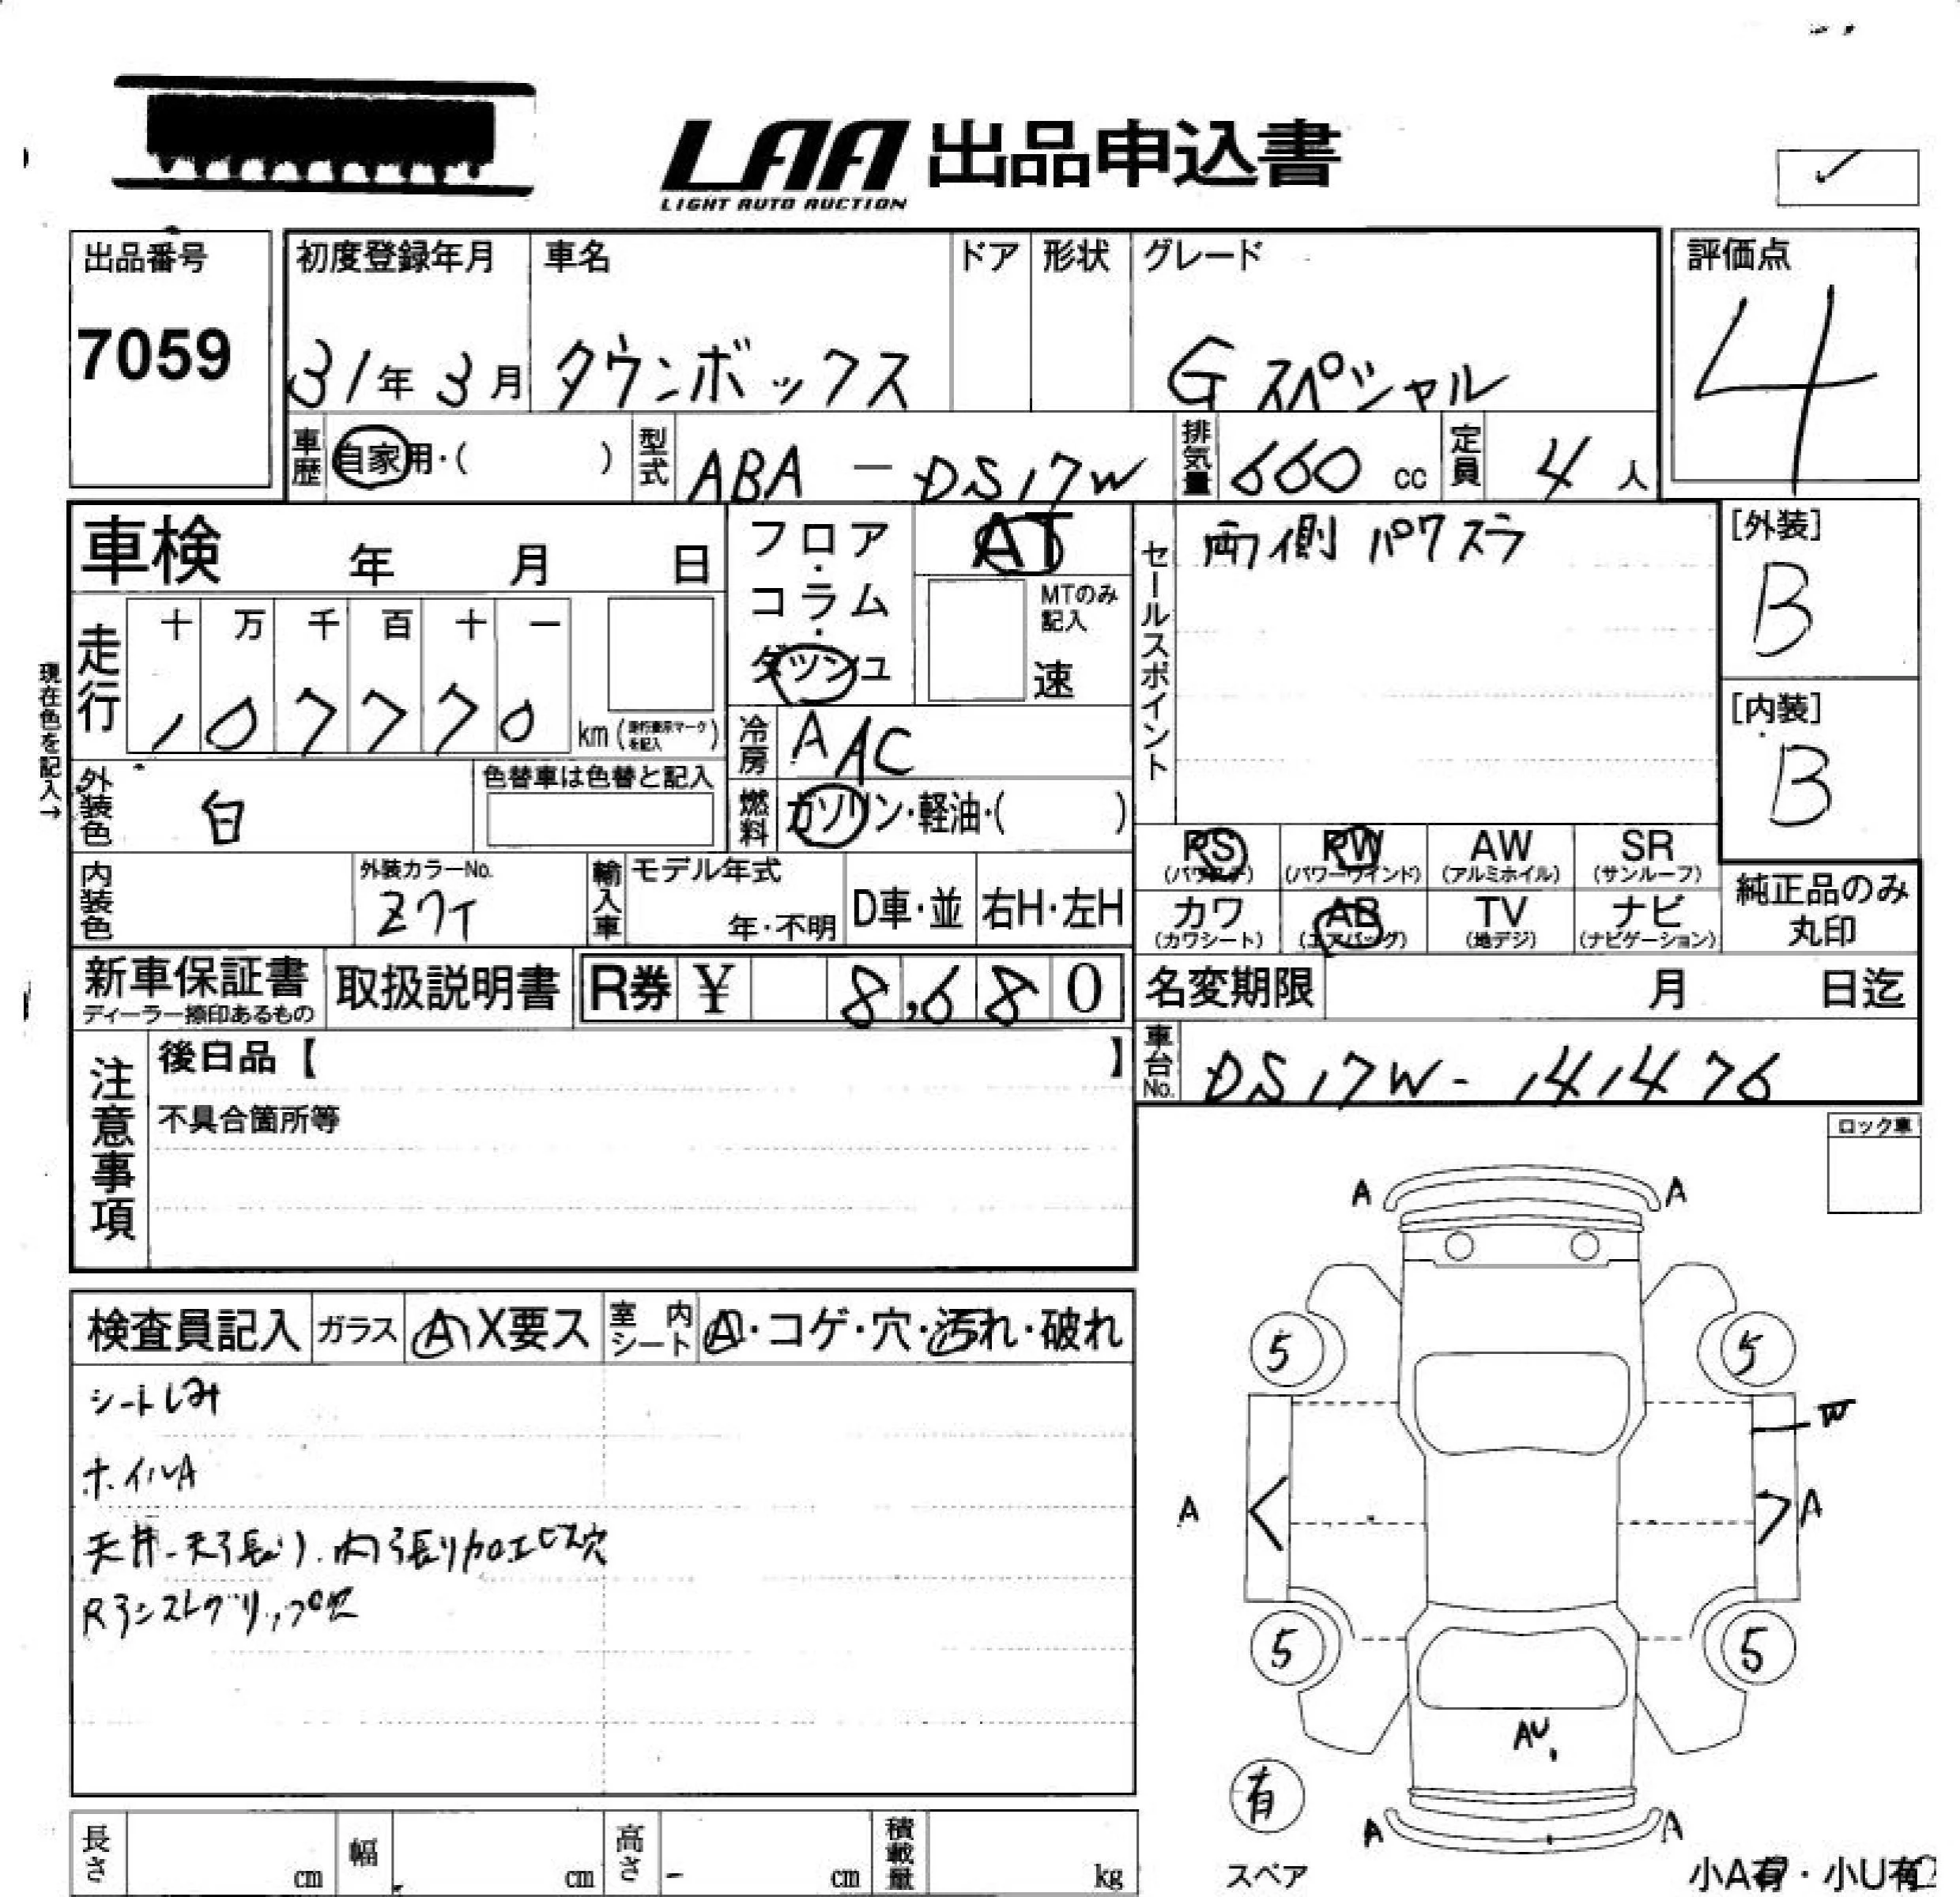 LAA 出品申込書
LIGHT AUTO AUCTION
出品番号
7059
初度登録年月
31年3月
車名
タウンボックス
ドア
形状
グレード
Gスペシャル
評価点
4
車歴
自家用・( )
型式
ABA - DS17W
排気量
660 cc
定員
4 人
車検 年 月 日
フロア・コラム・ダッシュ
AT
MTのみ記入
速
セールスポイント
両側パワスラ
[外装]
B
現在色を記入→
走行
十 万 千 百 十 一
107770 km
冷房
AAC
[内装]
B
外装色
白
色替車は色替と記入
燃料
ガソリン・軽油・( )
PS (パワステ)
PW (パワーウインド)
AW (アルミホイル)
SR (サンルーフ)
カワ (カワシート)
AB (エアバッグ)
TV (地デジ)
ナビ (ナビゲーション)
純正品のみ
丸印
内装色
外装カラーNo.
Z7T
輸入車
モデル年式
年・不明
D車・並
右H・左H
新車保証書
ディーラー捺印あるもの
取扱説明書
R券 ¥ 8,680
名変期限 月 日迄
車台No.
DS17W-141476
注意事項
後日品【 】
不具合箇所等
ロック車
検査員記入
ガラス
A X要ス
室内シート
A・コゲ・穴・汚れ・破れ
シートしみ
ホイルA
天井-天張り.内張り加工ビス穴
A A
5 5
W
A A
5 5
AU
有
スペア
A A
小A有・小U有
長さ cm
幅 cm
高さ cm
積載量 kg